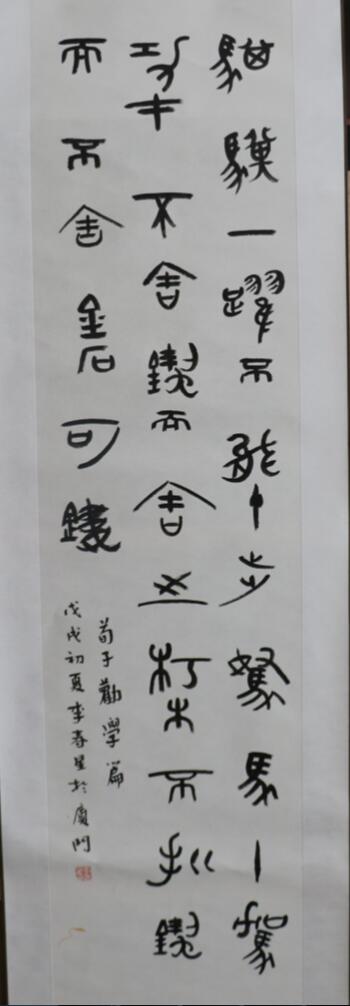 騏驥一躍不能十步駑馬十駕
功在不舍鍥而舍之朽木不折鍥
而不舍金石可鏤
荀子勸學篇
戊戌初夏李春星於廈門